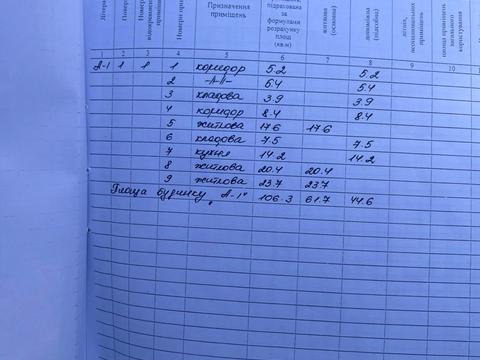 Літера
Поверх
Номер
відокремленого
приміщення
Номери
Призначення
приміщень
підрахована
за
формулами
розрахунку
площ
(кв.м)
житлова
(основна)
допоміжна
(підсобна)
літніх,
неопалювальних
приміщень
площа приміщень
загального
користування
1 2 3 4 5 6 7 8 9 10
А-І 1 1 1 коридор 5.2 5.2
2 -//- 5.4 5.4
3 кладова 3.9 3.9
4 коридор 8.4 8.4
5 житлова 17.6 17.6
6 кладова 7.5 7.5
7 кухня 14.2 14.2
8 житлова 20.4 20.4
9 житлова 23.7 23.7
Площа будинку „А-І" 106.3 61.7 44.6